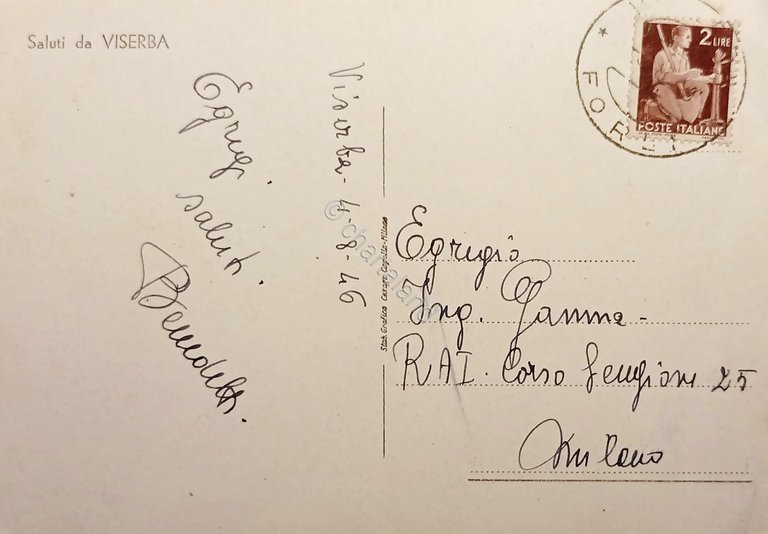 Saluti da VISERBA
Egregi
saluti.
Benedetti.
Viserba - 4-8-46
Stab. Grafico Cesare Capello - Milano
2 LIRE
POSTE ITALIANE
FORLI
Egregio
Ing. Gamma -
RAI. Corso Sempione 25
Milano